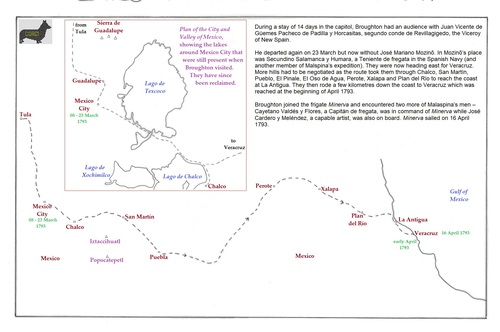 from
Tula
Sierra de
Guadalupe
Plan of the City and
Valley of Mexico,
showing the lakes
around Mexico City
that were still present
when Broughton
visited.
They have since
been reclaimed.
Guadalupe
Mexico
City
08 - 23 March
1793
Lago de
Texcoco
to
Veracruz
Lago de
Xochimilco
Lago de Chalco
Chalco
During a stay of 14 days in the capitol, Broughton had an audience with Juan Vicente de
Güemes Pacheco de Padilla y Horcasitas, segundo conde de Revillagigedo, the Viceroy
of New Spain.
He departed again on 23 March but now without José Mariano Moziño. In Moziño's place
was Secundino Salamanca y Humara, a Teniente de fregata in the Spanish Navy (and
another member of Malspina's expedition). They were now heading east for Veracruz.
More hills had to be negotiated as the route took them through Chalco, San Martin,
Pueblo, El Pinale, El Oso de Agua, Perote, Xalapa and Plan del Rio to reach the coast
at La Antigua. They then rode a few kilometres down the coast to Veracruz which was
reached at the beginning of April 1793.
Broughton joined the frigate Minerva and encountered two more of Malaspina's men –
Cayetano Valdés y Flores, a Capitán de fregata, was in command of Minerva while José
Cardero y Meléndez, a capable artist, was also on board. Minerva sailed on 16 April
1793.
Tula
Mexico
City
08 - 23 March
1793
Chalco
San Martin
Iztaccihuatl
Popocatepetl
Mexico
Puebla
Perote
Xalapa
Plan
del Rio
Mexico
La Antigua
Veracruz
16 April 1793
early April
1793
Gulf of
Mexico